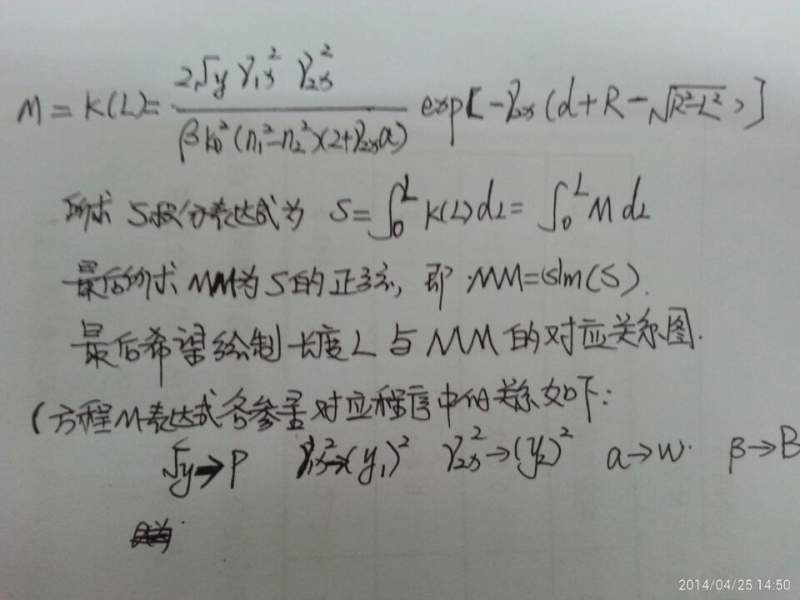 M = K(L) = \frac{2\sqrt{y} γ_{1x}^2 γ_{2x}^2}{β k_0^2 (n_1^2 - n_2^2)(2+γ_{2x}a)} exp[-γ_{2x}(d+R-\sqrt{R^2-L^2})]
所求 S积分表达式为 S=∫_0^L K(L)dL = ∫_0^L M dL
最后所求 MM为S的正弦, 即 MM=sin(S).
最后希望绘制长度L与MM的对应关系图.
(方程M表达式各参量对应程序中的关系如下:
\sqrt{y}→P γ_{1x}^2→(y_1)^2 γ_{2x}^2→(y_2)^2 a→w. β→B
2014/04/25 14:50